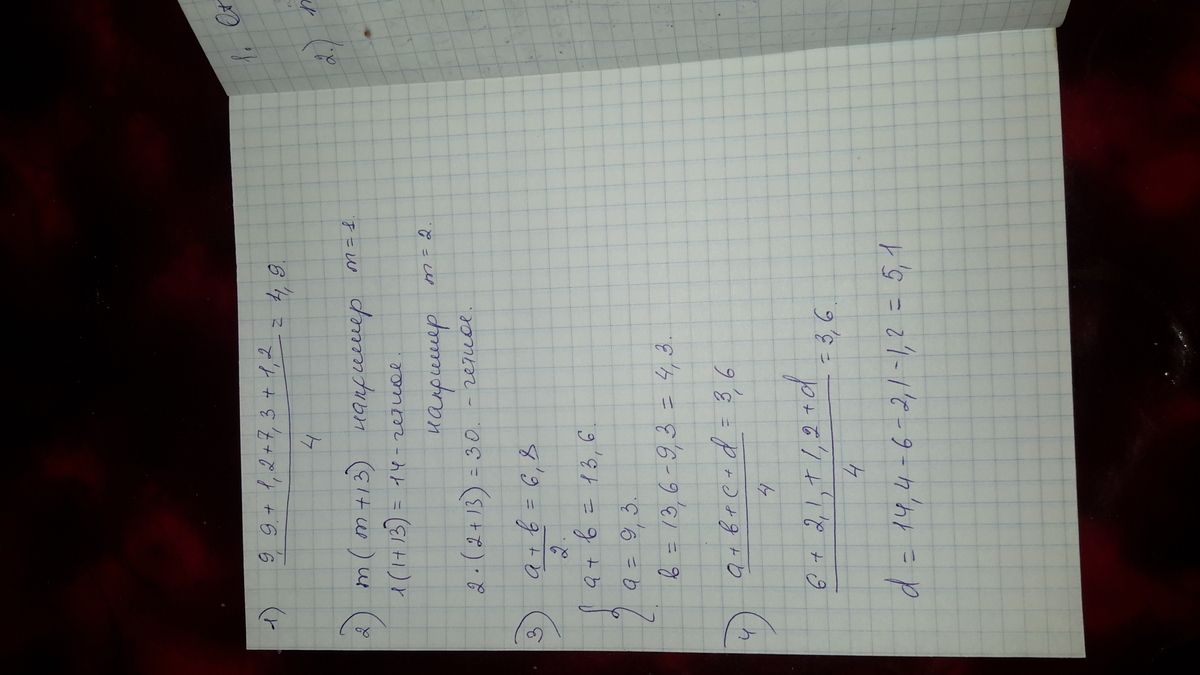 1) (9,9 + 1,2 + 7,3 + 1,2) / 4 = 4,9.
2) m(m+13) например m=1.
1(1+13)=14 - четное.
например m=2.
2·(2+13)=30. - четное.
3) (a+b) / 2 = 6,8
{ a + b = 13,6.
a = 9,3.
b = 13,6 - 9,3 = 4,3.
4) (a+b+c+d) / 4 = 3,6
(6 + 2,1, + 1,2 + d) / 4 = 3,6.
d = 14,4 - 6 - 2,1 - 1,2 = 5,1
1.
2.)